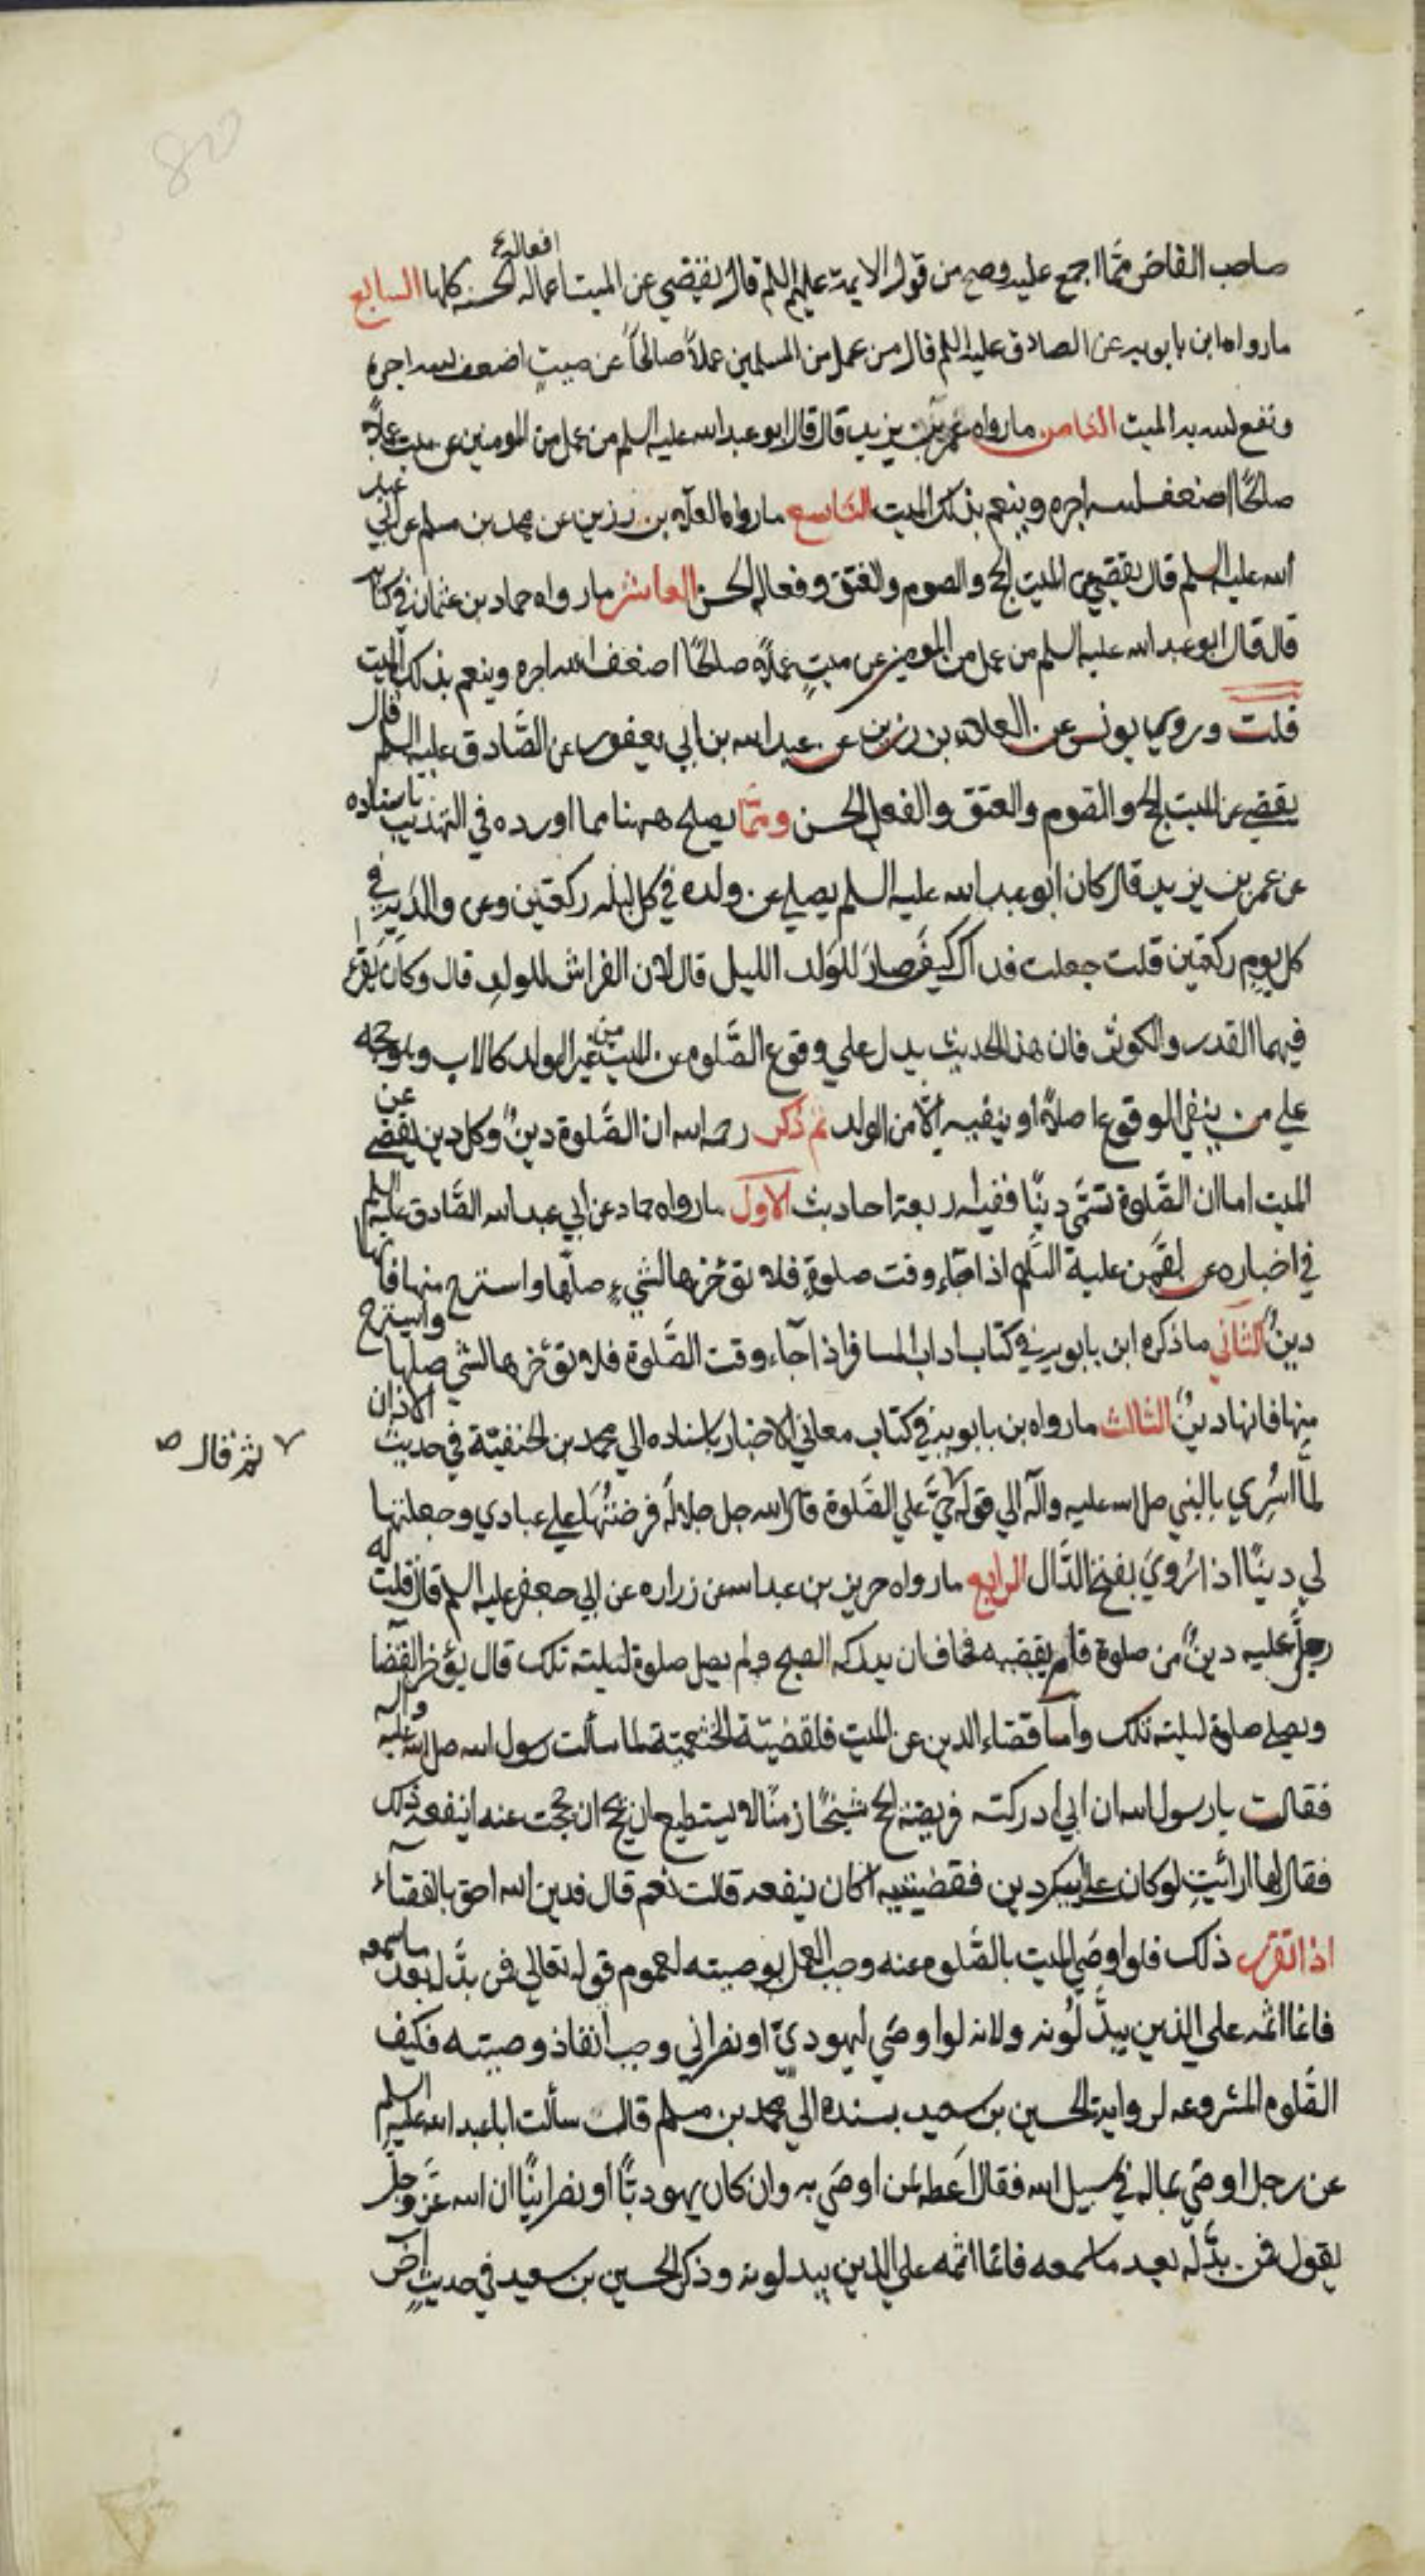 افعاله ع
صاحب الفاخر مما اجمع عليه وصح من قول الايمة عليهم السلم قال يقضي عن الميت اعماله الحسنه كلها السابع
ما رواه ابن بابويه عن الصادق عليه السلم قال من عمل من المسلمين عملاً صالحاً عن ميتٍ اضعف الله اجره
ونفع الله به الميت الثامن ما رواه عمر بن يزيد قال قال ابو عبد الله عليه السلم من عمل من المومنين عن ميت عملاً
صالحًا اضعف الله اجره وينعم بذلك الميت التاسع ما رواه العلآء بن رزين عن محمد بن مسلم عن ابي عبد
الله عليه السلم قال يقضي عن الميت الحج والصوم والعتق وفعاله الحسن العاشر ما رواه حماد بن عثمان في كتابه
قال قال ابو عبد الله عليه السلم من عمل من المومنين عن ميتٍ عملاً صالحًا اضعف الله اجره وينعم بذلك الميت
قلت وروي يونس عن العلاء بن رزين عن عبد الله بن ابي يعفور عن الصَّادق عليه السلم قال
يقضي عن الميت الحج والصوم والعتق والفعل الحسن وممّا يصلح ههنا مما اورده في التهذيب باسناده
عن عمر بن يزيد قال كان ابو عبد الله عليه السلم يصلي عن ولده في كل ليله ركعتين وعن والديه في
كل يوم ركعتين قلت جعلت فداك كيف صارَ للوَلد الليل قال لان الفراش للولدِ قال وكان يقرء
فيهما القدر والكوثر فان هذا الحديث يدل علي وقوع الصَّلوه عن الميت من غير الولد كالاب وهو حجه
علي من ينفي الوقوع اصلاً او ينفيه الّا من الولد ثم ذكر رحمه الله ان الصَّلوة دينٌ وكل دين يقضي عن
الميت اما ان الصَّلوة تسمّي دينًا ففيه اربعة احاديث الاول ما رواه حماد عن ابي عبد الله الصَّادق عليه السلم
في اخباره عن لقمن علية السَّلم اذا جآء وقت صلوةٍ فلا تؤخرها لشيءٍ صلّها واسترح منها فانها
دينٌ الثاني ما ذكره ابن بابويه في كتاب اداب المسافر اذا جآء وقت الصَّلوة فلا تؤخرها لشي صلها واسترح
منها فانها دينٌ الثالث ما رواه بن بابويه في كتاب معاني الاخبار باسناده الي محمد بن الحنفيّة في حديث الاذان
٧ ثمّ قال ص
لما اُسْرِي بالنبي صلى الله عليه وآله الي قوله حيَّ علي الصَّلوة قال الله جل جلاله فرضتُهَا علي عبادي وجعلتها
لي دينًا اذا رُوي بفتح الدَّال الرابع ما رواه حريز بن عبد الله عن زراره عن ابي جعفر عليه السلم قال قلت له
رجلٌ عليه دينٌ من صلوة قام يقضيه فخاف ان يدركه الصبح ولم يصل صلوة ليلته تلك قال يؤخر القضا
ويصلي صلوة ليلته تلك وأما قضاء الدين عن الميت فلقضيّة الخثعميّة لما سألت رسول الله صلى الله عليه واله
فقالت يا رسول الله ان ابي ادركته فريضة الحج شيخًا زمنًا لا يستطيع ان يحج ان حججت عنه اينفعه ذلك
فقال لها ارائيتِ لو كان علي ابيكِ دين فقضيتيه اكان ينفعه قالت نعم قال فدين الله احق بالقضآء
اذا تقرر ذلك فلو اوصَي الميت بالصَّلوه عنه وجب العمل بوصيته لعموم قوله تعالي فمن بدَّله بعد ما سمعه
فانما اثمه علي الذين يبدّلونه ولانه لو اوصَي ليهوديّ او نصراني وجب انفاذ وصيته فكيف
الصَّلوه المشروعه لروايه الحسين بن سعيد بسنده الي محمد بن مسلم قال سألت ابا عبد الله عليه السلم
عن رجل اوصَي بماله في سبيل الله فقال اَعطه لمن اوصَي به وان كان يهوديًّا او نصرانيًّا ان الله عزّ وجلّ
يقول فمن بدَّله بعد ما سمعه فانما اثمه علي الذين يبدلونه وذكر الحسين بن سعيد في حديثٍ آخر